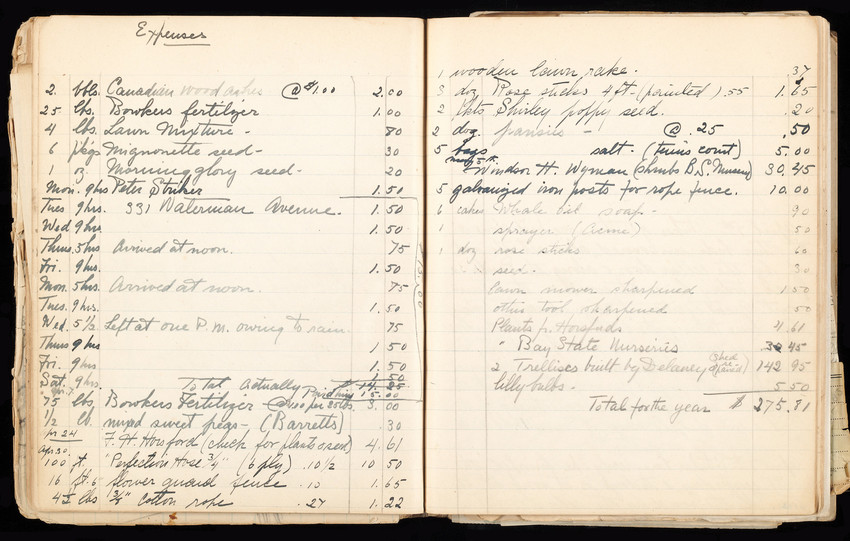 Expenses
2 bbls. Canadian wood ashes @ $1.00 2.00
25 lbs. Bowkers fertilizer 1.00
4 lbs. Lawn Mixture - 80
6 pkgs Mignonette seed - 30
1 oz Morning glory seed - 20
Mon. 9 hrs Peter Striker 1.50
Tues 9 hrs. 331 Waterman Avenue. 1.50
Wed 9 hrs 1.50
Thurs. 5 hrs Arrived at noon. 75
Fri. 9 hrs. 1.50
Mon. 5 hrs. Arrived at noon. 75
Tues. 9 hrs. 1.50
Wed. 5 1/2 Left at one P.M. owing to rain. 75
Thurs 9 hrs 1.50
Fri. 9 hrs. 1.50
Sat. 9 hrs. 1.50
Total Actually 14.25
Paid him 15.00
75 lbs Bowkers Fertilizer @ 1.00 per 25 lbs. 3.00
1/2 lb. mixed sweet peas - (Barretts) .30
Apr 24 F. H. Horsford (check for plants & seed) 4.61
Apr 30
100 ft. "Perfection Hose 3/4" (6 ply) .10 1/2 10 50
16 ft. flower guard fence .10 1.65
4 1/2 lbs 3/4" Cotton rope .27 1.22
1 wooden lawn rake. 37
3 doz Rose sticks 4 ft - (painted) .55 1.65
2 pkts Shirley poppy seed. .20
2 doz. pansies - @ .25 .50
5 bags salt. (tennis court) 5.00
May 5th Windsor H. Wyman (shrubs B.S. Nurseries) 30.45
5 galvanized iron posts for rope fence. 10.00
6 cakes Whale oil soap - 90
1 sprayer (Acme) 50
1 doz rose sticks 60
seed. 30
lawn mower sharpened 1.50
other tool sharpened 50
Plants fr. Horsfords 4.61
" Bay State Nurseries 30 45
2 Trellises built by Delaney (shed repaired) 142 95
lilly bulbs. 5 50
Total for the year $ 275.81